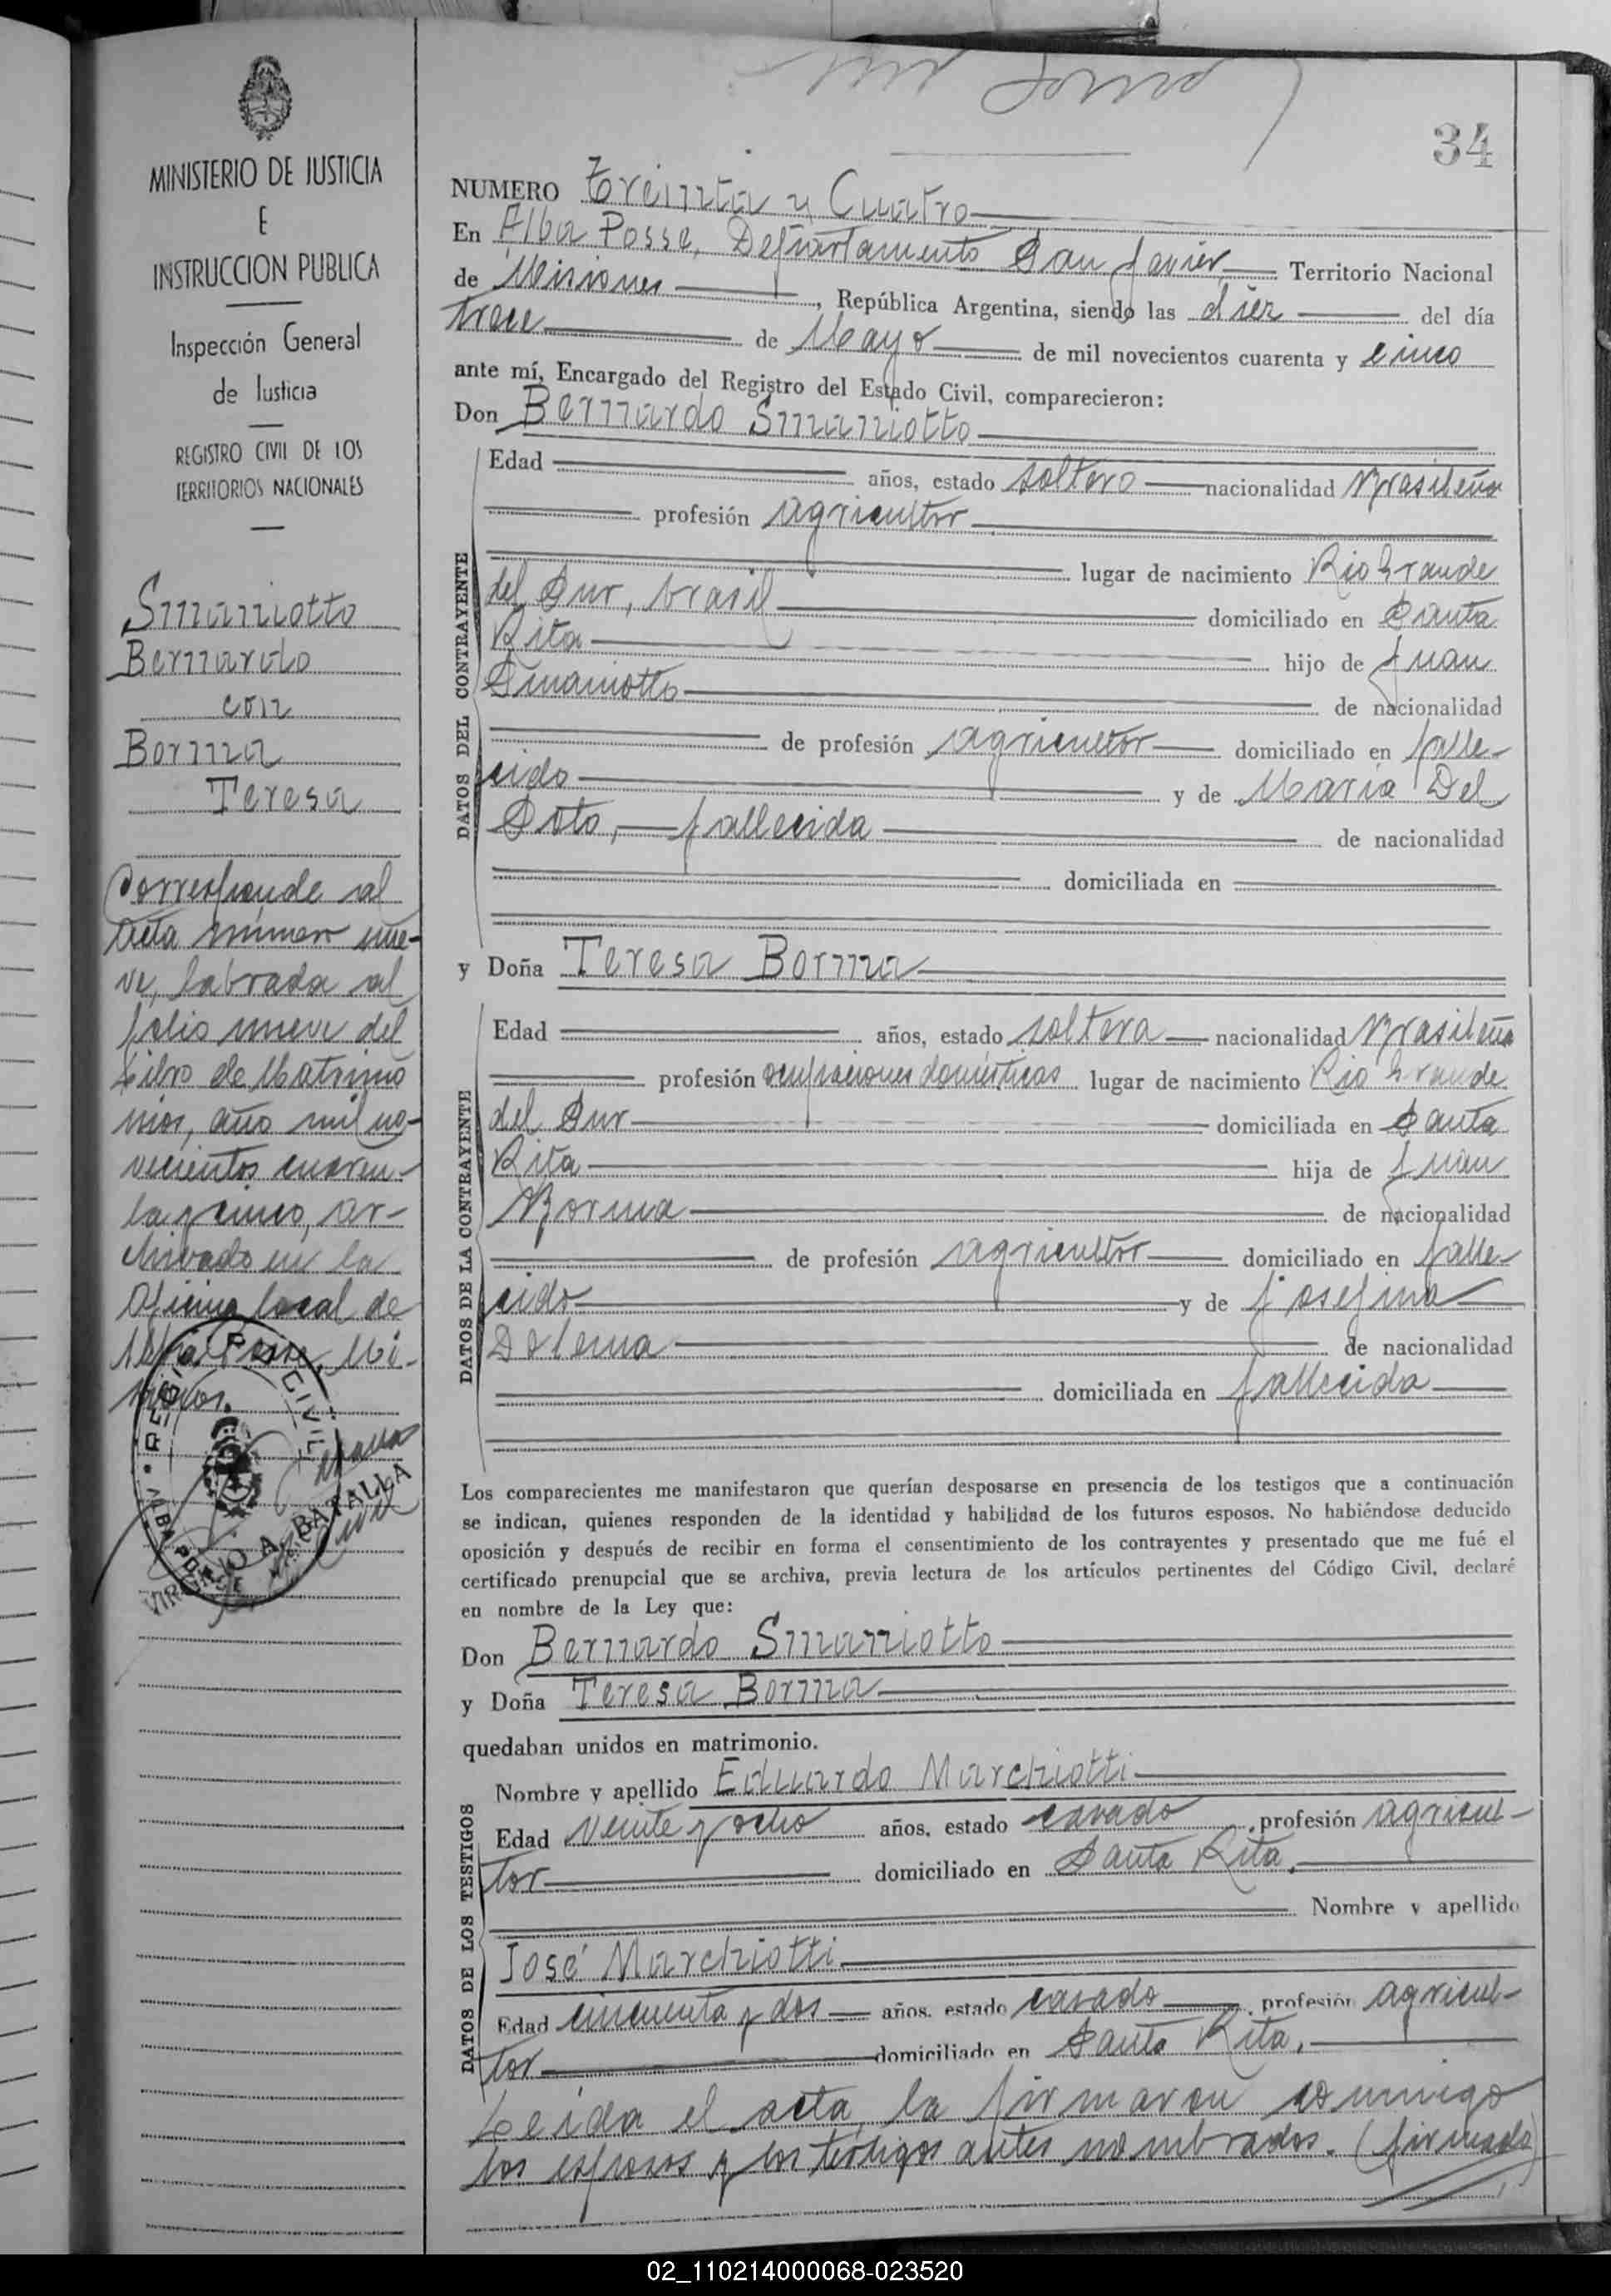 34
MINISTERIO DE JUSTICIA
E
INSTRUCCION PUBLICA
Inspección General
de Justicia
REGISTRO CIVIL DE LOS
TERRITORIOS NACIONALES
Smaniotto
Bernardo
con
Borma
Teresa
Corresponde al
Acta número nue-
ve, labrada al
folio nueve del
Libro de Matrimo
nios, año mil no-
vecientos cuaren-
ta y cinco, ar-
chivado en la
Oficina local de
Alba Posse, Mi-
siones.
REGISTRO CIVIL
ALBA POSSE
VIRGINIO A. BATALLA
NUMERO Treinta y Cuatro
En Alba Posse, Departamento San Javier Territorio Nacional
de Misiones, República Argentina, siendo las diez del día
trece de Mayo de mil novecientos cuarenta y cinco
ante mí, Encargado del Registro del Estado Civil, comparecieron:
Don Bernardo Smaniotto
DATOS DEL CONTRAYENTE
Edad años, estado soltero nacionalidad Brasileña
profesión agricultor
lugar de nacimiento Rio Grande
del Sur, Brasil domiciliado en Santa
Rita hijo de Juan
Smaniotto de nacionalidad
de profesión agricultor domiciliado en falle-
cido y de María Del
Soto, fallecida de nacionalidad
domiciliada en
y Doña Teresa Borma
DATOS DE LA CONTRAYENTE
Edad años, estado soltera nacionalidad Brasileña
profesión ocupaciones domésticas lugar de nacimiento Rio Grande
del Sur domiciliada en Santa
Rita hija de Juan
Borma de nacionalidad
de profesión agricultor domiciliado en falle-
cido y de Josefina
de nacionalidad
domiciliada en fallecida
Los comparecientes me manifestaron que querían desposarse en presencia de los testigos que a continuación
se indican, quienes responden de la identidad y habilidad de los futuros esposos. No habiéndose deducido
oposición y después de recibir en forma el consentimiento de los contrayentes y presentado que me fué el
certificado prenupcial que se archiva, previa lectura de los artículos pertinentes del Código Civil, declaré
en nombre de la Ley que:
Don Bernardo Smaniotto
y Doña Teresa Borma
quedaban unidos en matrimonio.
DATOS DE LOS TESTIGOS
Nombre y apellido Eduardo Marchiotti
Edad veinte y ocho años, estado casado, profesión agricul-
tor domiciliado en Santa Rita.
Nombre y apellido
José Marchiotti
Edad cincuenta y dos años, estado casado, profesión agricul-
tor domiciliado en Santa Rita.
Leída el acta, la firmaron conmigo
los esposos y los testigos antes nombrados. (firmado)
02_110214000068-023520